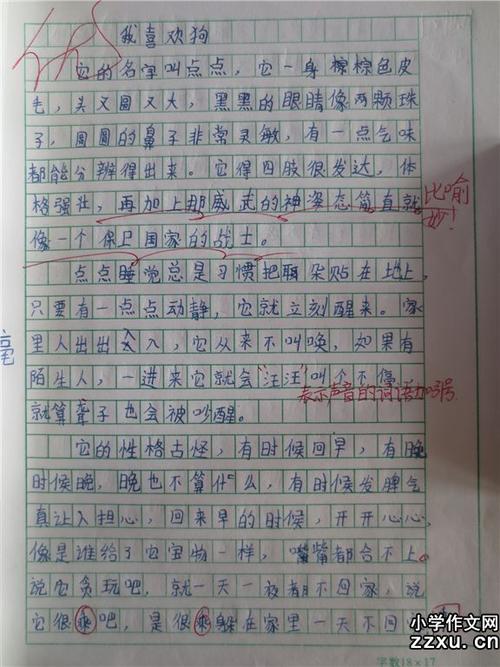 我喜欢狗
它的名字叫点点，它一身棕棕色皮
毛，头又圆又大，黑黑的眼睛像两颗珠
子，圆圆的鼻子非常灵敏，有一点气味
都能分辨得出来。它得四肢很发达，体
格强壮，再加上那威武的神姿态简直就
像一个保卫国家的战士。
比喻
妙！
点点睡觉总是习惯把耳朵贴在地上，
只要有一点点动静，它就立刻醒来。家
里人出出入入，它从来不叫唤，如果有
陌生人，一进来它就会“汪汪”叫个不停，
表示声音的词语加引号
就算聋子也会被吵醒。
它的性格古怪，有时候回早，有晚
时候晚，晚也不算什么，有时候发脾气
真让人担心，回来早的时候，开开心心，
像是谁给了它宝物一样，嘴嘴都合不上。
说它贪玩吧，就一天一夜都不回家，说
它很乘吧，是很乘躲在家里一天不回
字数18×1
小学作文网
zzxu.cn